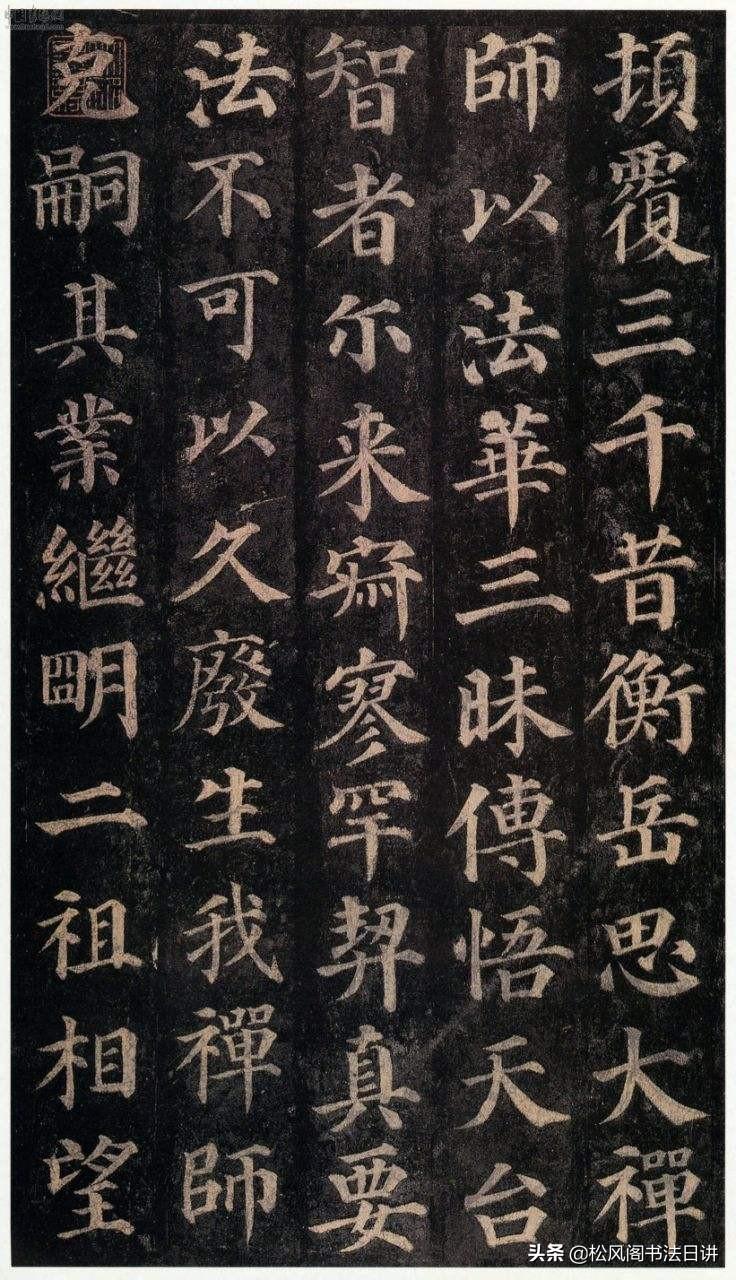 頂覆三千昔衡岳思大禪
師以法華三昧傳悟天台
智者尓来寂寥罕契真要
法不可以久廢生我禪師
克嗣其業繼明二祖相望
头条 @松风阁书法日讲